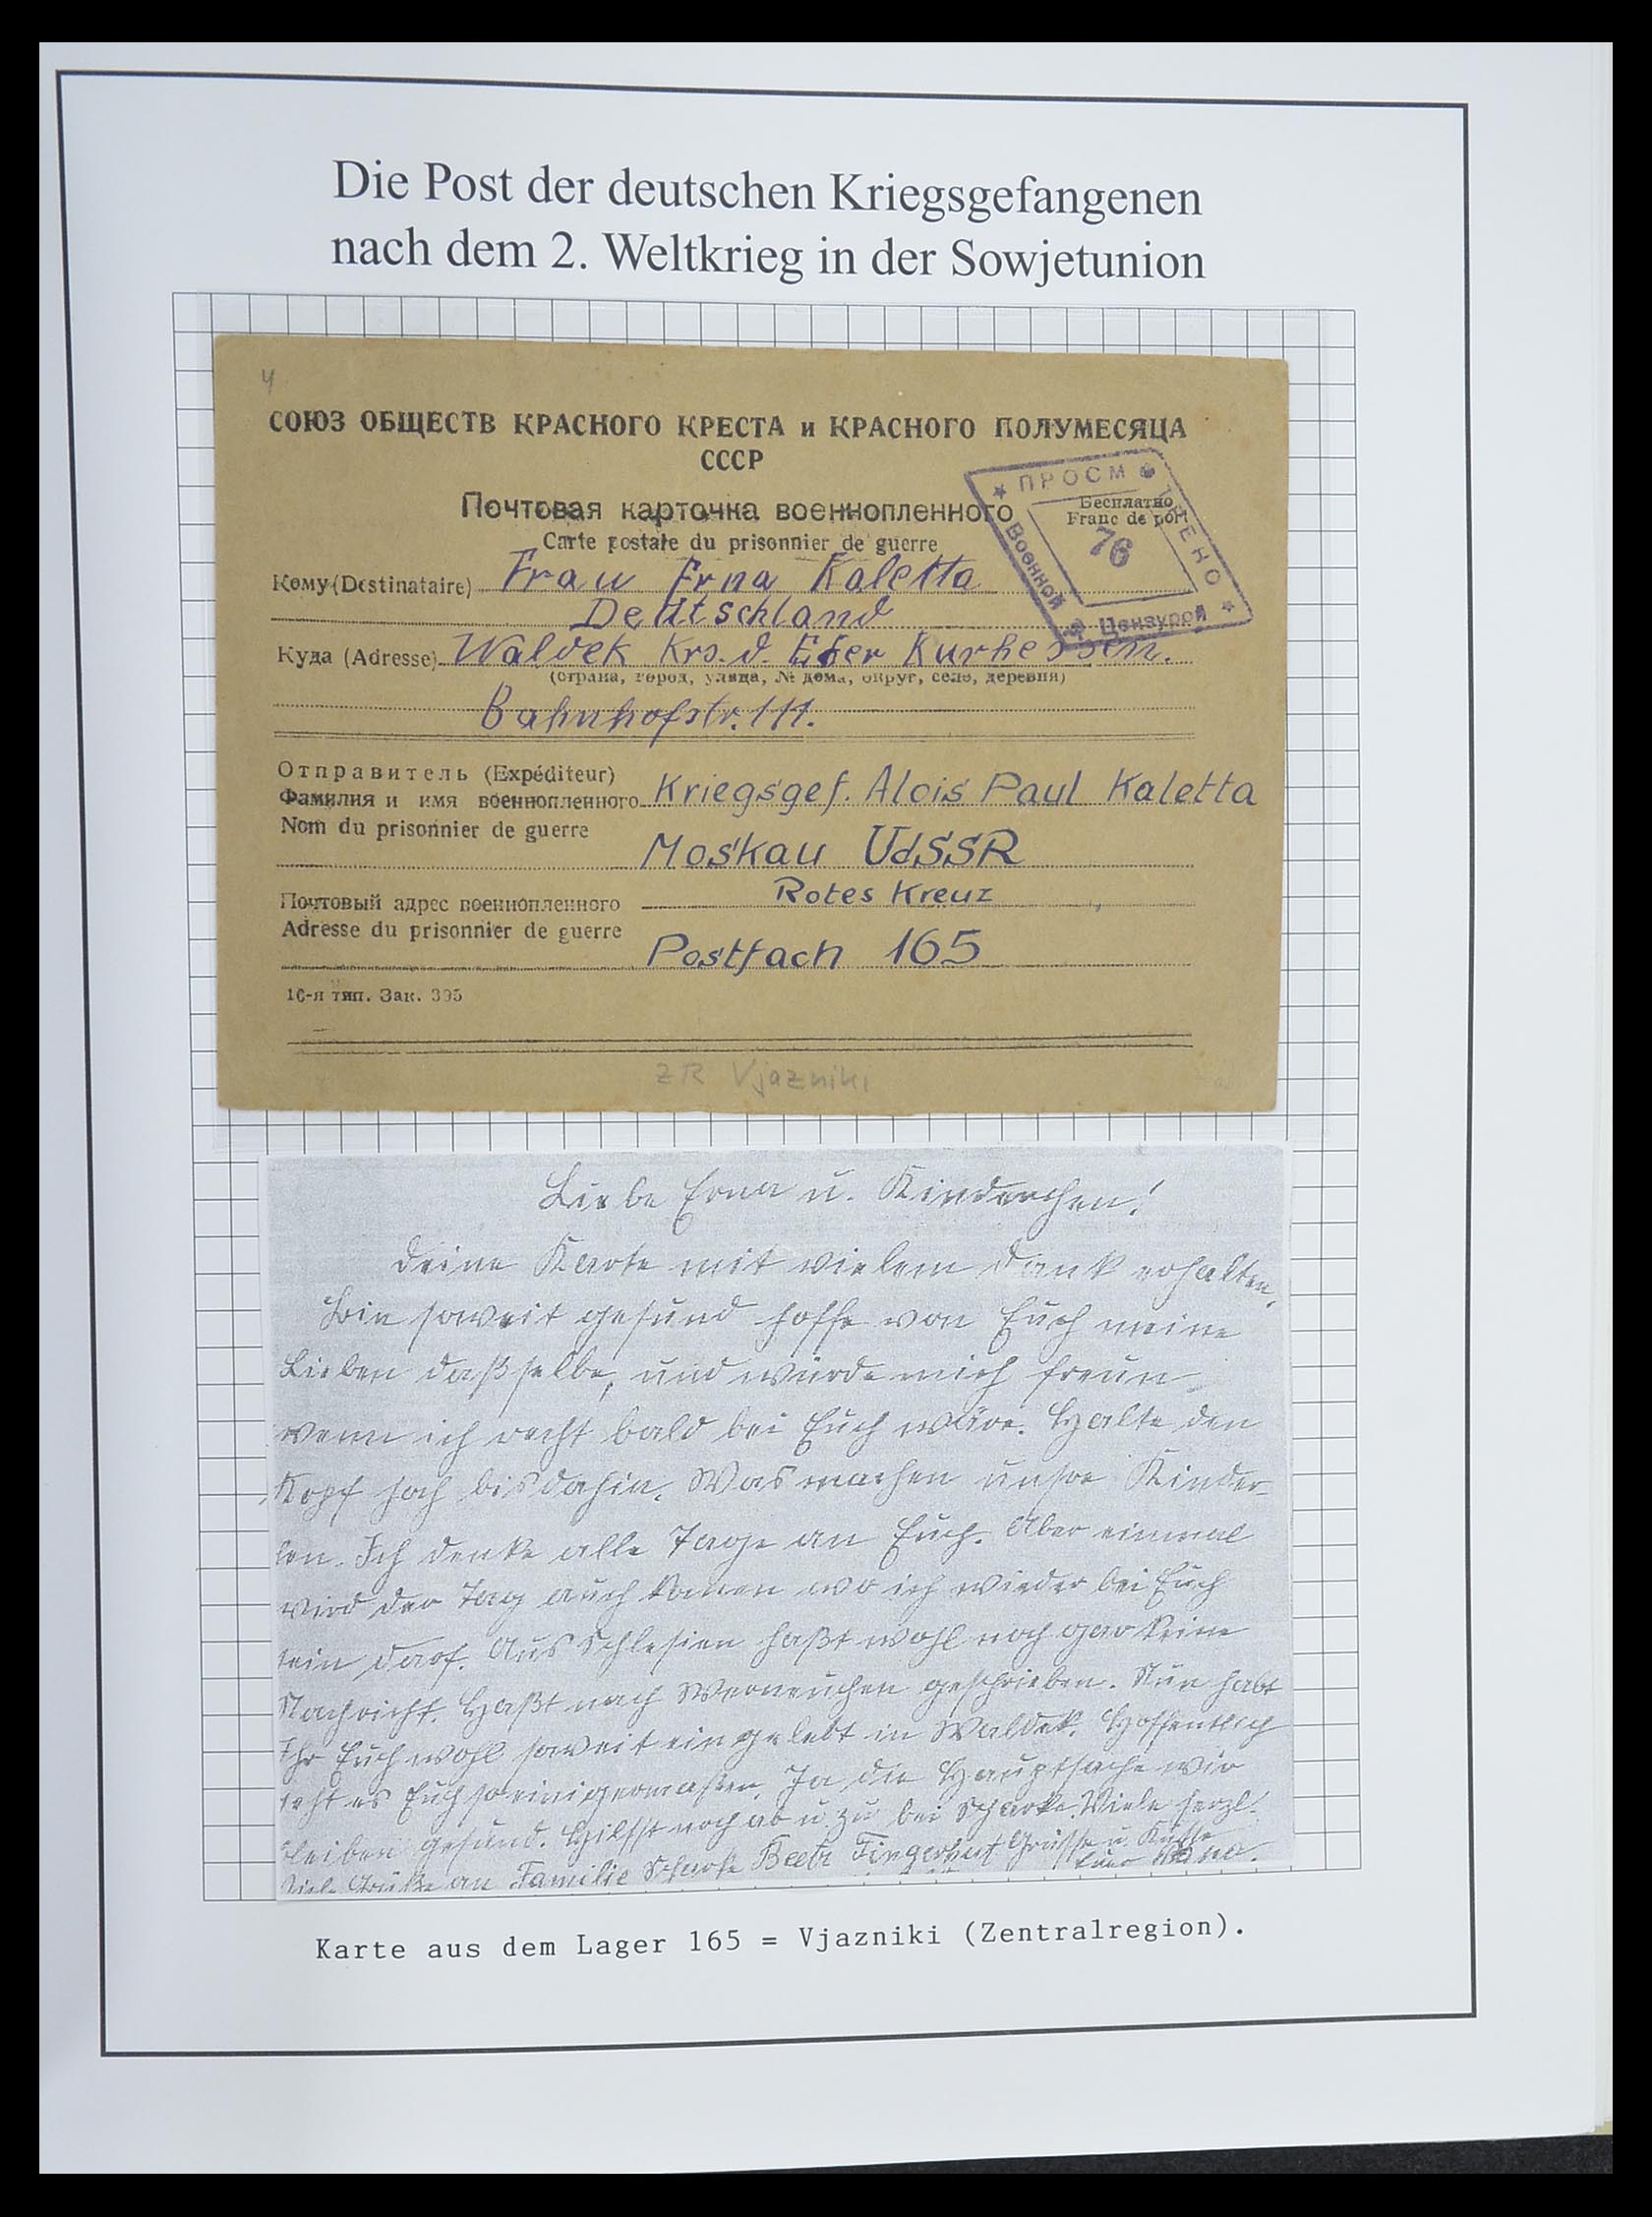 Die Post der deutschen Kriegsgefangenen
nach dem 2. Weltkrieg in der Sowjetunion
4
СОЮЗ ОБЩЕСТВ КРАСНОГО КРЕСТА и КРАСНОГО ПОЛУМЕСЯЦА
СССР
Почтовая карточка военнопленного
Carte postale du prisonnier de guerre
Бесплатно
Franc de port
ПРОСМ ЕНО
Военной
Цензурой
76
Кому (Destinataire) Frau Erna Kaletta
Deutschland
Куда (Adresse) Waldek Krs. d. Eder Kurhessen.
(страна, город, улица, № дома, округ, село, деревня)
Bahnhofstr. 111.
Отправитель (Expéditeur)
Фамилия и имя военнопленного Kriegsgef. Alois Paul Kaletta
Nom du prisonnier de guerre
Moskau UdSSR
Почтовый адрес военнопленного Rotes Kreuz
Adresse du prisonnier de guerre
Postfach 165
16-я тип. Зак. 395
ZR Vjazniki
Liebe Erna u. Kinderchen!
Deine Karte mit vielem Dank erhalten.
Bin soweit gesund hoffe von Euch meine
Lieben daßselbe, und würde mich freun
wenn ich recht bald bei Euch wäre. Halte den
Kopf hoch bis dahin. Was machen unsre Kinder-
len. Ich denke alle Tage an Euch. Aber einmal
wird der Tag auch komen wo ich wieder bei Euch
sein darf. Aus Schlesien haßt wohl noch gar keine
Nachricht. Haßt nach Werneuchen geschrieben. Nun habt
Ihr Euch wohl soweit eingelebt in Waldek. Hoffentlich
geht es Euch so einigermaßen. Ja die Hauptsache wir
bleiben gesund. Hilfst noch ab u. zu bei Scharke. Viele herzl.
Viele Grüße an Familie Scharke Beetr Fingerhut Grüße u. Küsse
Euer
Karte aus dem Lager 165 = Vjazniki (Zentralregion).